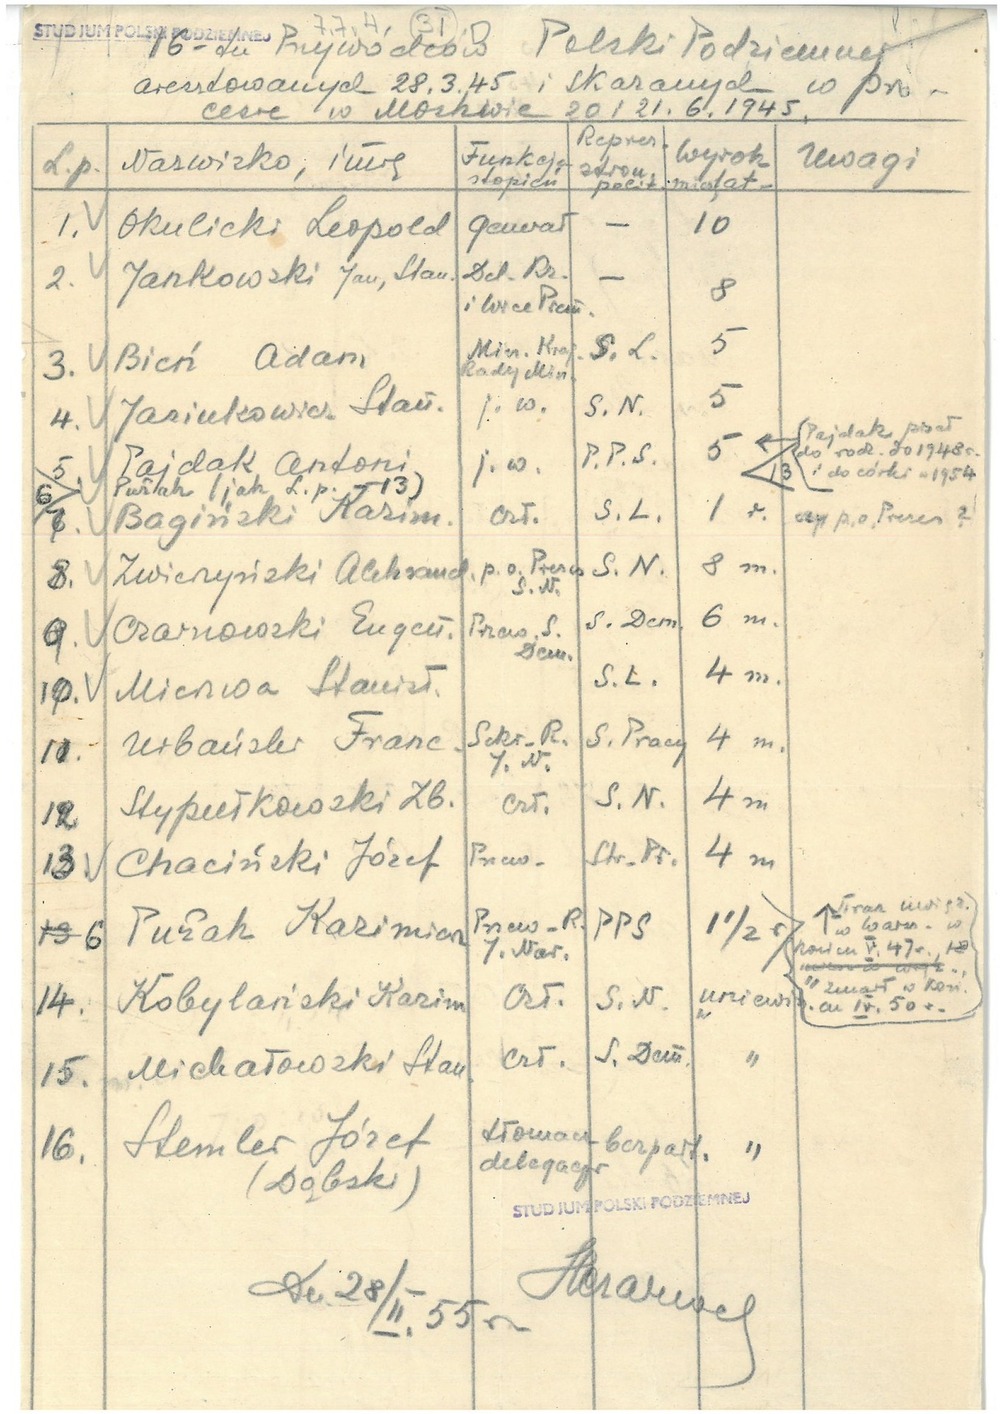 7.7.4. 31
STUDJUM POLSKI PODZIEMNEJ
16-tu Przywódców Polski Podziemnej
aresztowanych 28.3.45 i skazanych w pro-
cesie w Moskwie 20 i 21.6.1945.
L.p. Nazwisko, imię Funkcja stopień Reprez. stron. polit. Wyrok mies/lat Uwagi
1. V Okulicki Leopold generał — 10
2. V Jankowski Jan, Stan. Del. Rz. i Wice Prem. — 8
3. V Bień Adam Min. Kraj. Rady Min. S. L. 5
4. V Jasiukowicz Stan. j. w. S. N. 5
5 V Pajdak Antoni j. w. P.P.S. 5 Pajdak pisał do rodz. do 1948 r. i do córki w 1954
6 Pużak (jak L.p. 13) 13
V Bagiński Kazim. czł. S. L. 1 r. czy p.o. Prezes?
8. V Zwierzyński Aleksand. p.o. Prezes S.N. S. N. 8 m.
9. V Czarnowski Eugen. Przew. S. Dem. S. Dem. 6 m.
10. V Mierzwa Stanisł. S. L. 4 m.
11. Urbański Franc. Sekr. R. J. N. S. Pracy 4 m.
12 Stypułkowski Zb. czł. S. N. 4 m
13 V Chaciński Józef Przew. Str. Pr. 4 m
13 6 Pużak Kazimierz Przew. R. J. Nar. PPS 1 1/2 r. uwięz. w Warsz. w końcu V. 47 r., zmarł w koń- cu IV. 50 r.
14. Kobylański Kazim czł. S. N. uniewin.
15. Michałowski Stan. czł. S. Dem. "
16. Stemler Józef tłomacz delegacji bezpart. "
(Dąbski)
STUDJUM POLSKI PODZIEMNEJ
Dn. 28/II. 55 r.